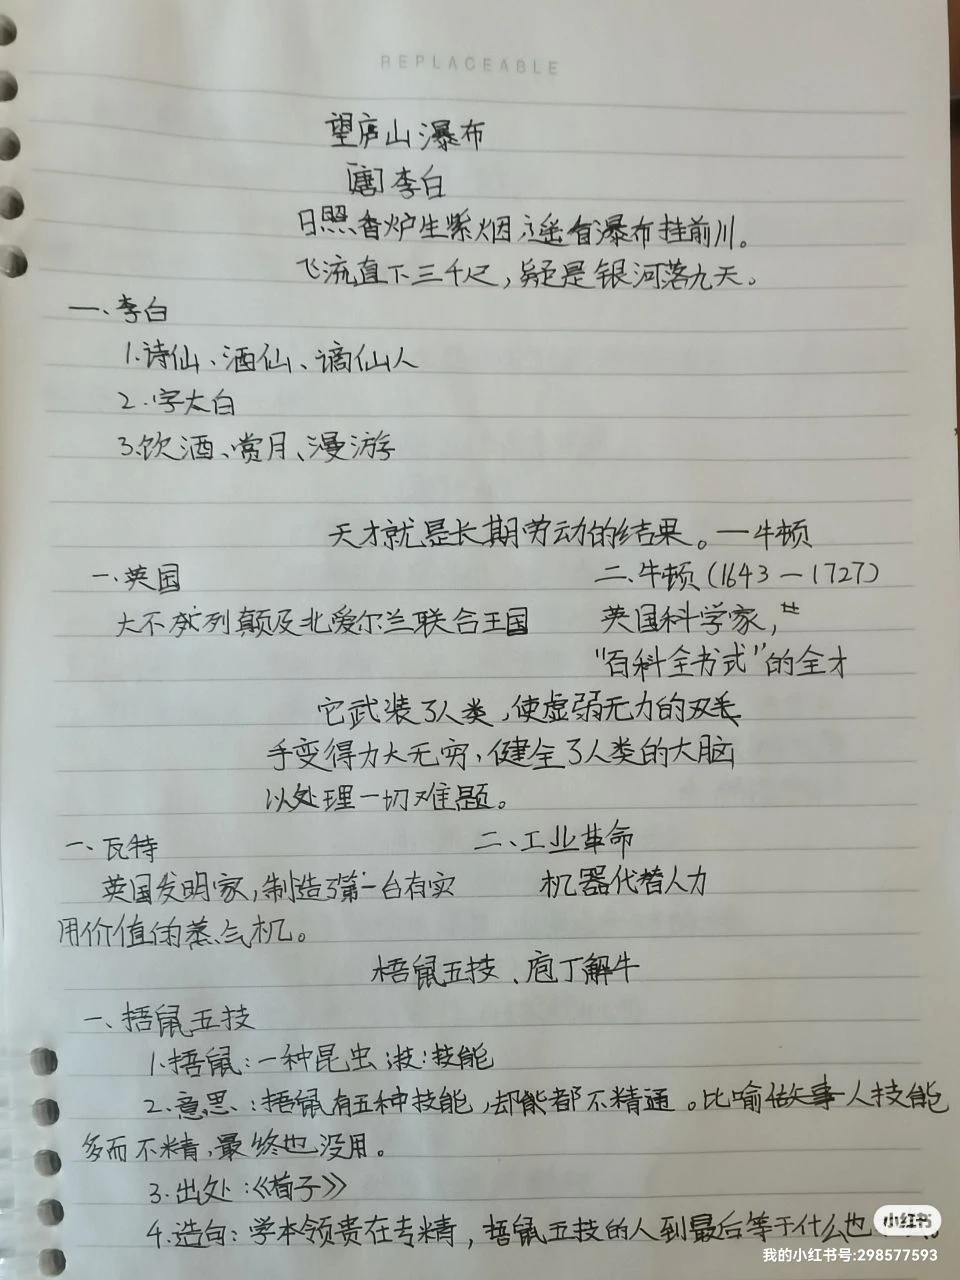 REPLACEABLE
望庐山瀑布
[唐]李白
日照香炉生紫烟,遥看瀑布挂前川。
飞流直下三千尺,疑是银河落九天。
一、李白
1.诗仙、酒仙、谪仙人
2.字太白
3.饮酒、赏月、漫游
天才就是长期劳动的结果。—牛顿
一、英国
大不列颠及北爱尔兰联合王国
二、牛顿(1643—1727)
英国科学家,
“百科全书式”的全才
它武装了人类,使虚弱无力的双
手变得力大无穷,健全了人类的大脑
以处理一切难题。
一、瓦特
英国发明家,制造了第一台有实
用价值的蒸气机。
二、工业革命
机器代替人力
梧鼠五技、庖丁解牛
一、梧鼠五技
1.梧鼠:一种昆虫;技:技能
2.意思:梧鼠有五种技能,却能都不精通。比喻做事一人技能
多而不精,最终也没用。
3.出处:《荀子》
4.造句:学本领贵在专精,梧鼠五技的人到最后等于什么也
小红书
我的小红书号:298577593